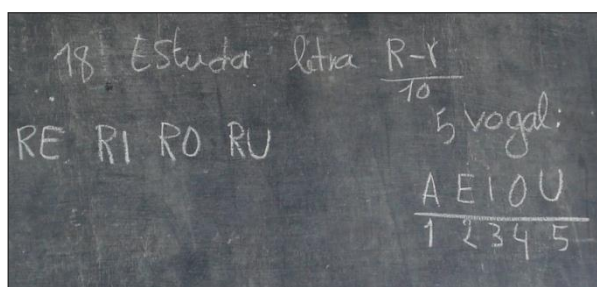 18 Estuda letra R-r
10
RE RI RO RU
5 vogal:
A E I O U
1 2 3 4 5